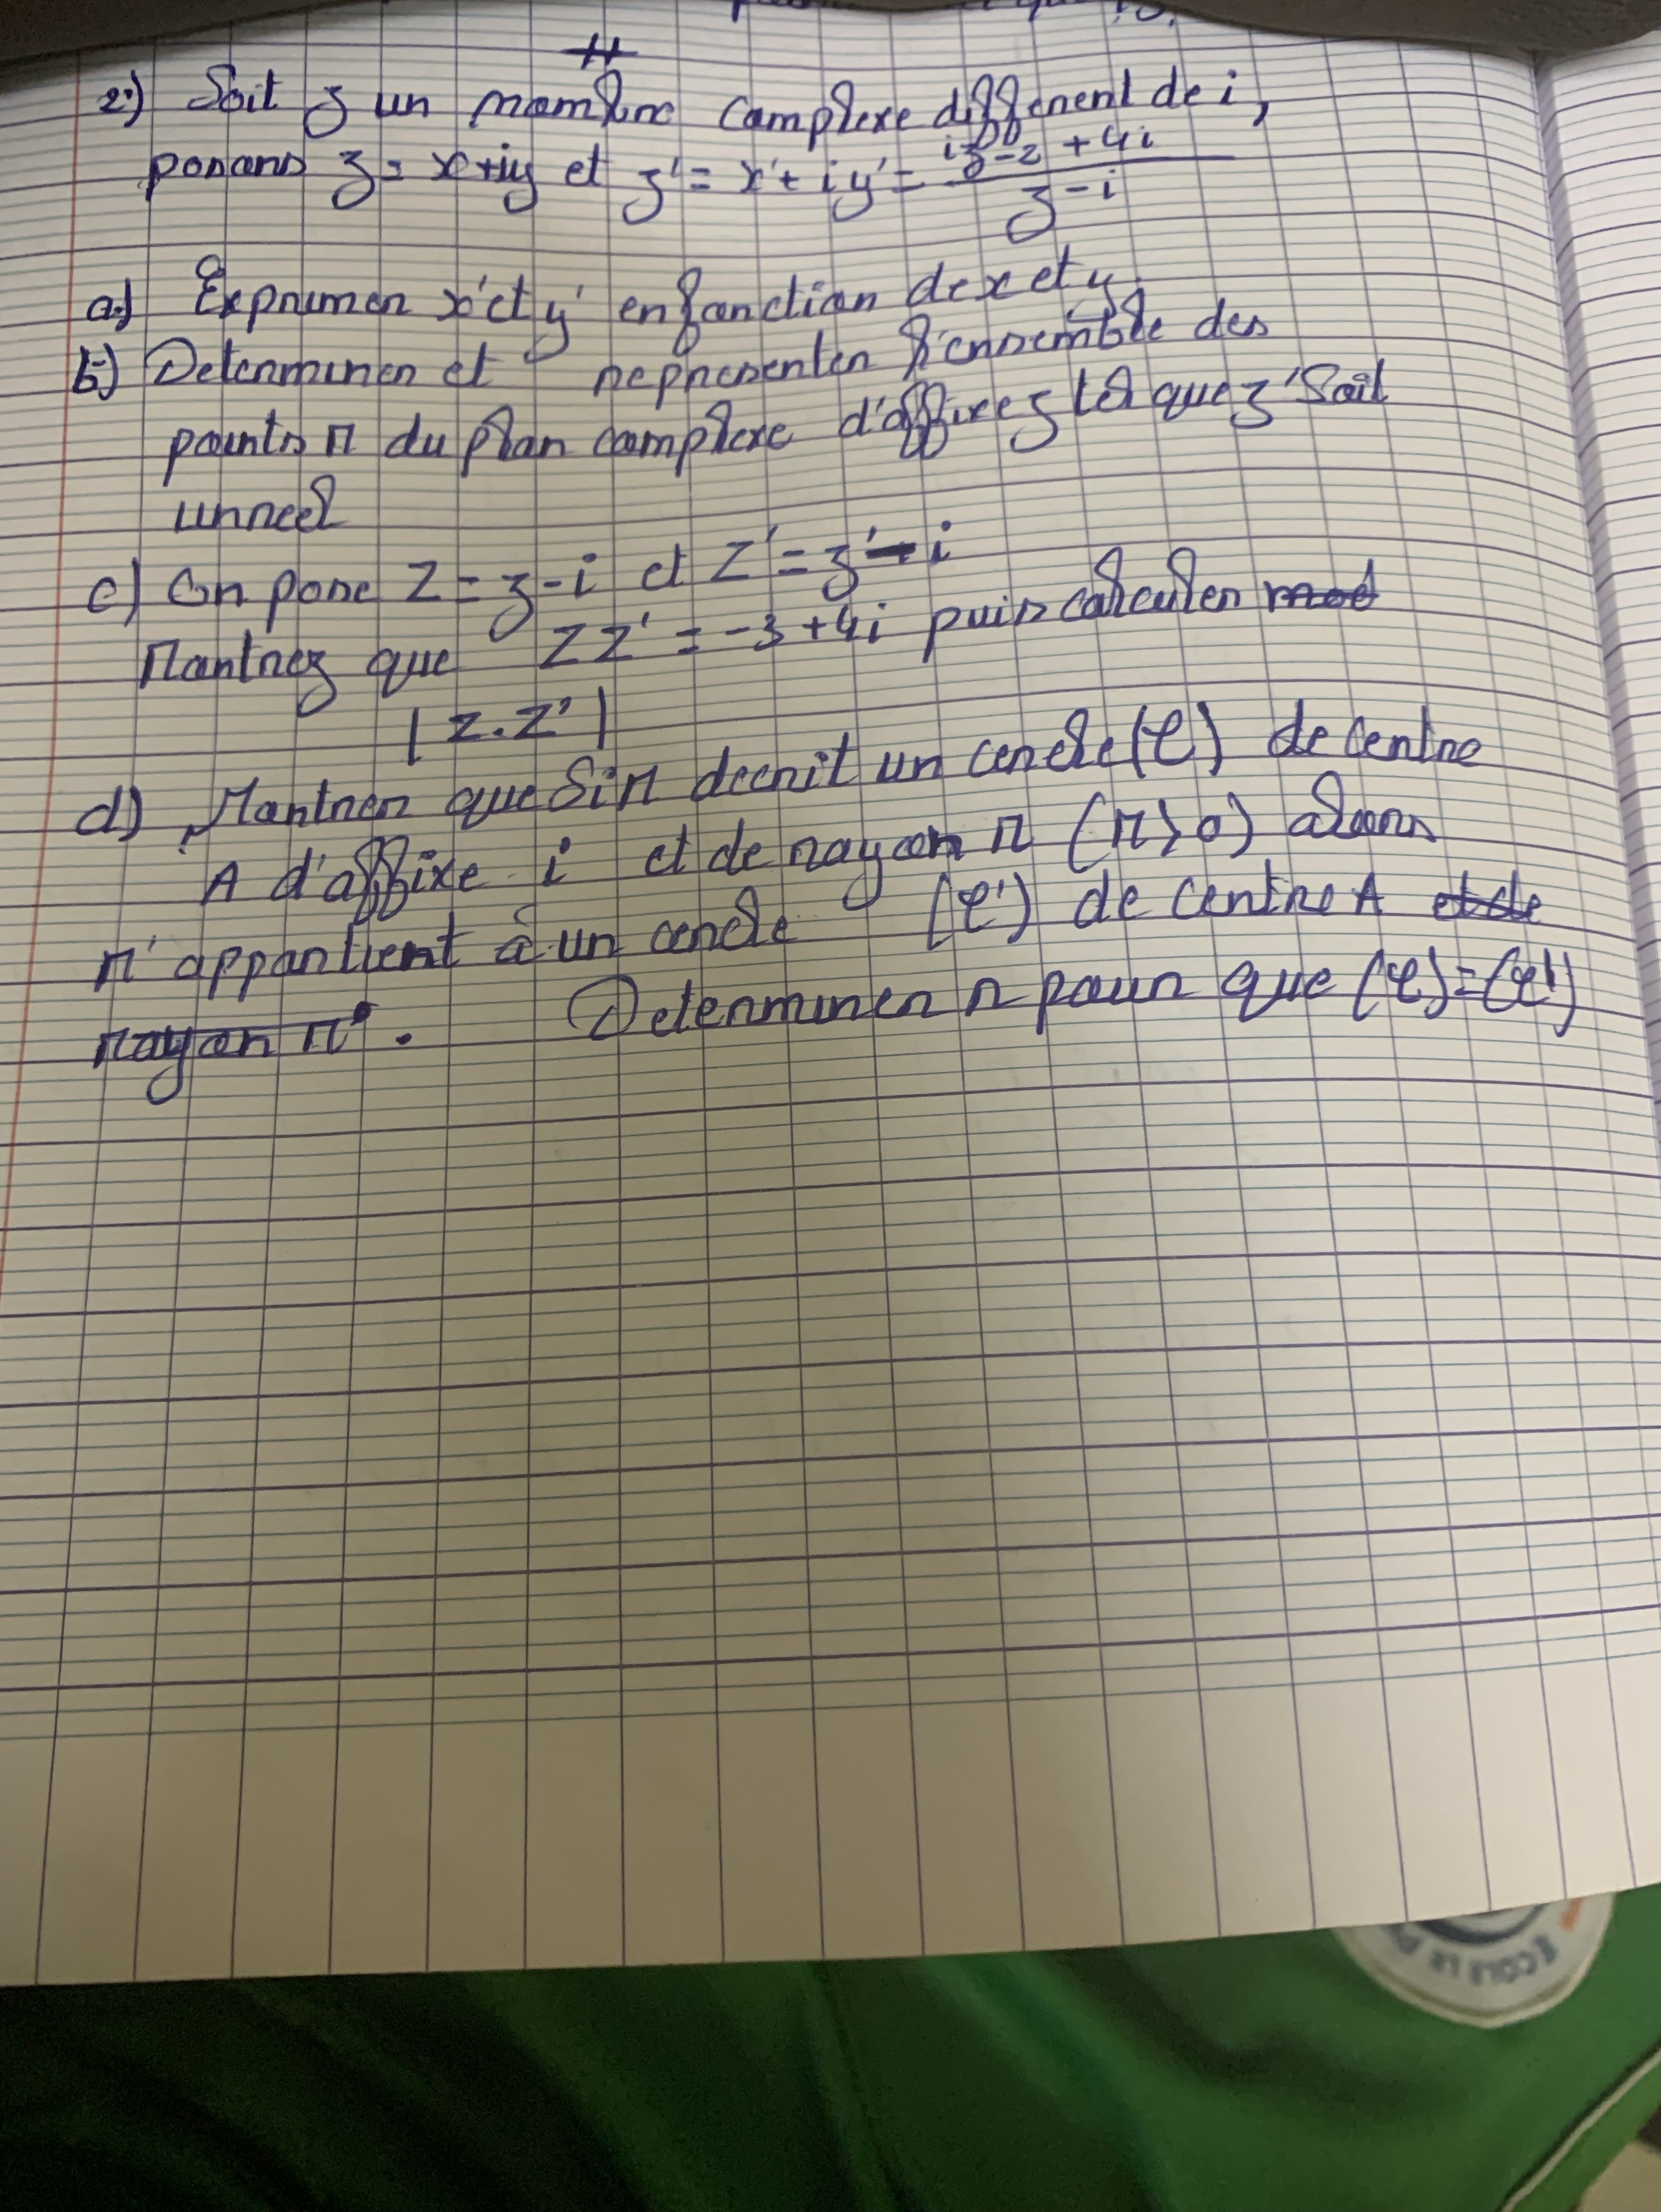 2°) Soit z un nombre complexe différent de i,
posons z = x+iy et z' = x'+iy' = \frac{iz-2+4i}{z-i}
a) Exprimer x' et y' en fonction de x et y.
b) Determiner et representer l'ensemble des
points M du plan complexe d'affixe z tel que z' soit
un reel
c) On pose Z = z-i et Z' = z'-i
Montrez que ZZ' = -3+4i puis calculer
|Z.Z'|
d) Montrer que si M decrit un cercle (C) de centre
A d'affixe i et de rayon r (r>0) alors
M' appartient à un cercle (C') de centre A et de
rayon r'. Determiner r pour que (C)=(C')